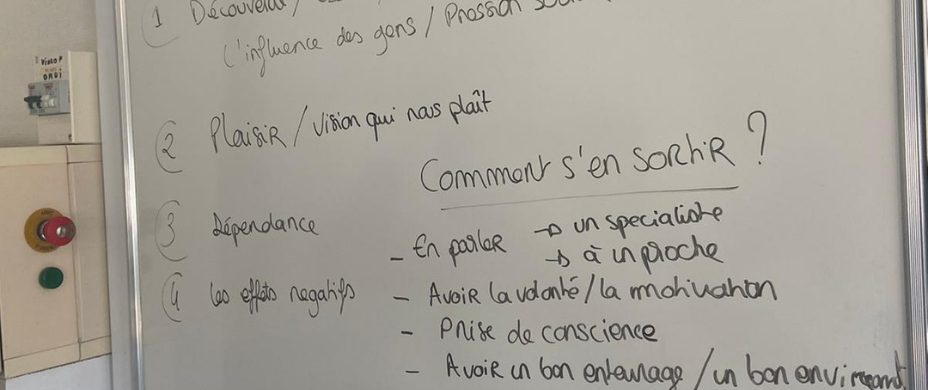 ① Découverte /
L'influence des gens / Pression
② Plaisir / Vision qui nous plaît
Comment s'en sortir ?
③ Dépendance
④ les effets negatifs
- En parler → un specialiste
→ à un proche
- Avoir la volonté / la motivation
- Prise de conscience
- Avoir un bon entourage / un bon
VIDEO P
ORDI